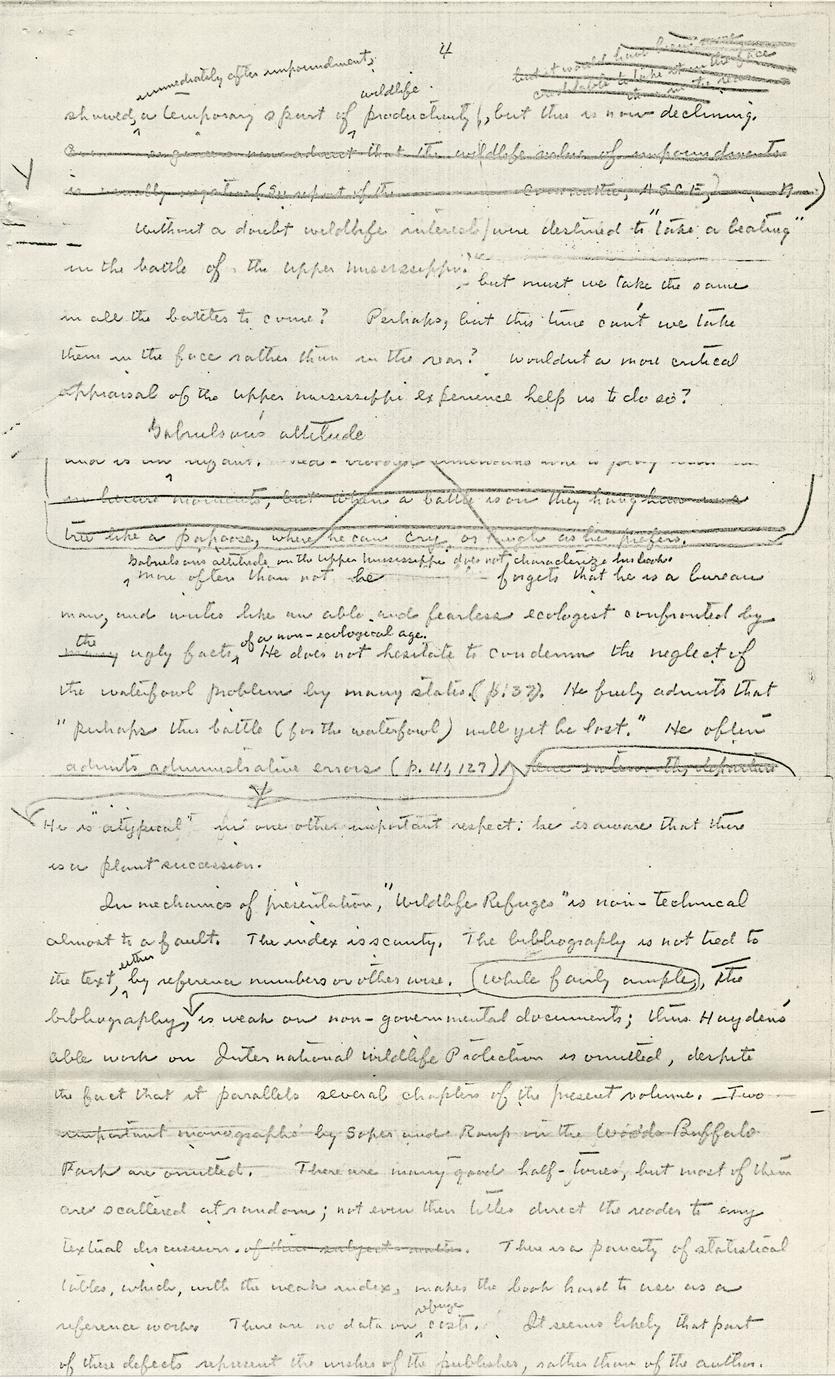 4
but it would have been more
creditable to take it in the face
than in the rear
immediately after impoundment,
wildlife
showed, a temporary spurt of productivity, but this is now declining.
that the wildlife value of impoundments
is usually negative (See report of the Committee, H.S.C.E.,
Without a doubt wildlife interests were destined to "take a beating"
in the battle of the upper Mississippi.
but must we take the same
in all the battles to come? Perhaps, but this time can't we take
them in the face rather than in the rear? Wouldn't a more critical
appraisal of the upper Mississippi experience help us to do so?
Gabrielson's attitude
moments, but when a battle is on they hang him on a
tree like a papoose, where he can cry or laugh as he prefers.
Gabrielson's attitude on the upper Mississippi does not characterize his book.
More often than not he forgets that he is a bureau
man, and writes like an able and fearless ecologist confronted by
the
many ugly facts
of a non-ecological age.
He does not hesitate to condemn the neglect of
the waterfowl problem by many states (p. 137). He freely admits that
"perhaps this battle (for the waterfowl) will yet be lost." He often
admits administrative errors (p. 41, 127)
He is "atypical" in one other important respect: he is aware that there
is a plant succession.
In mechanics of presentation, "Wildlife Refuges" is non-technical
almost to a fault. The index is scanty. The bibliography is not tied to
either
the text, by reference numbers or other wise. (While fairly ample), the
bibliography, is weak on non-governmental documents; thus Hayden's
able work on International Wildlife Protection is omitted, despite
the fact that it parallels several chapters of the present volume. Two
important monographs by Soper and Raup on the Woods Buffalo
Park are omitted. There are many good half-tones, but most of them
are scattered at random; not even their titles direct the reader to any
textual discussion of their subject matter. There is a paucity of statistical
tables, which, with the weak index, makes the book hard to use as a
refuge
reference work. There are no data on costs. It seems likely that part
of these defects represent the wishes of the publisher, rather than of the author.